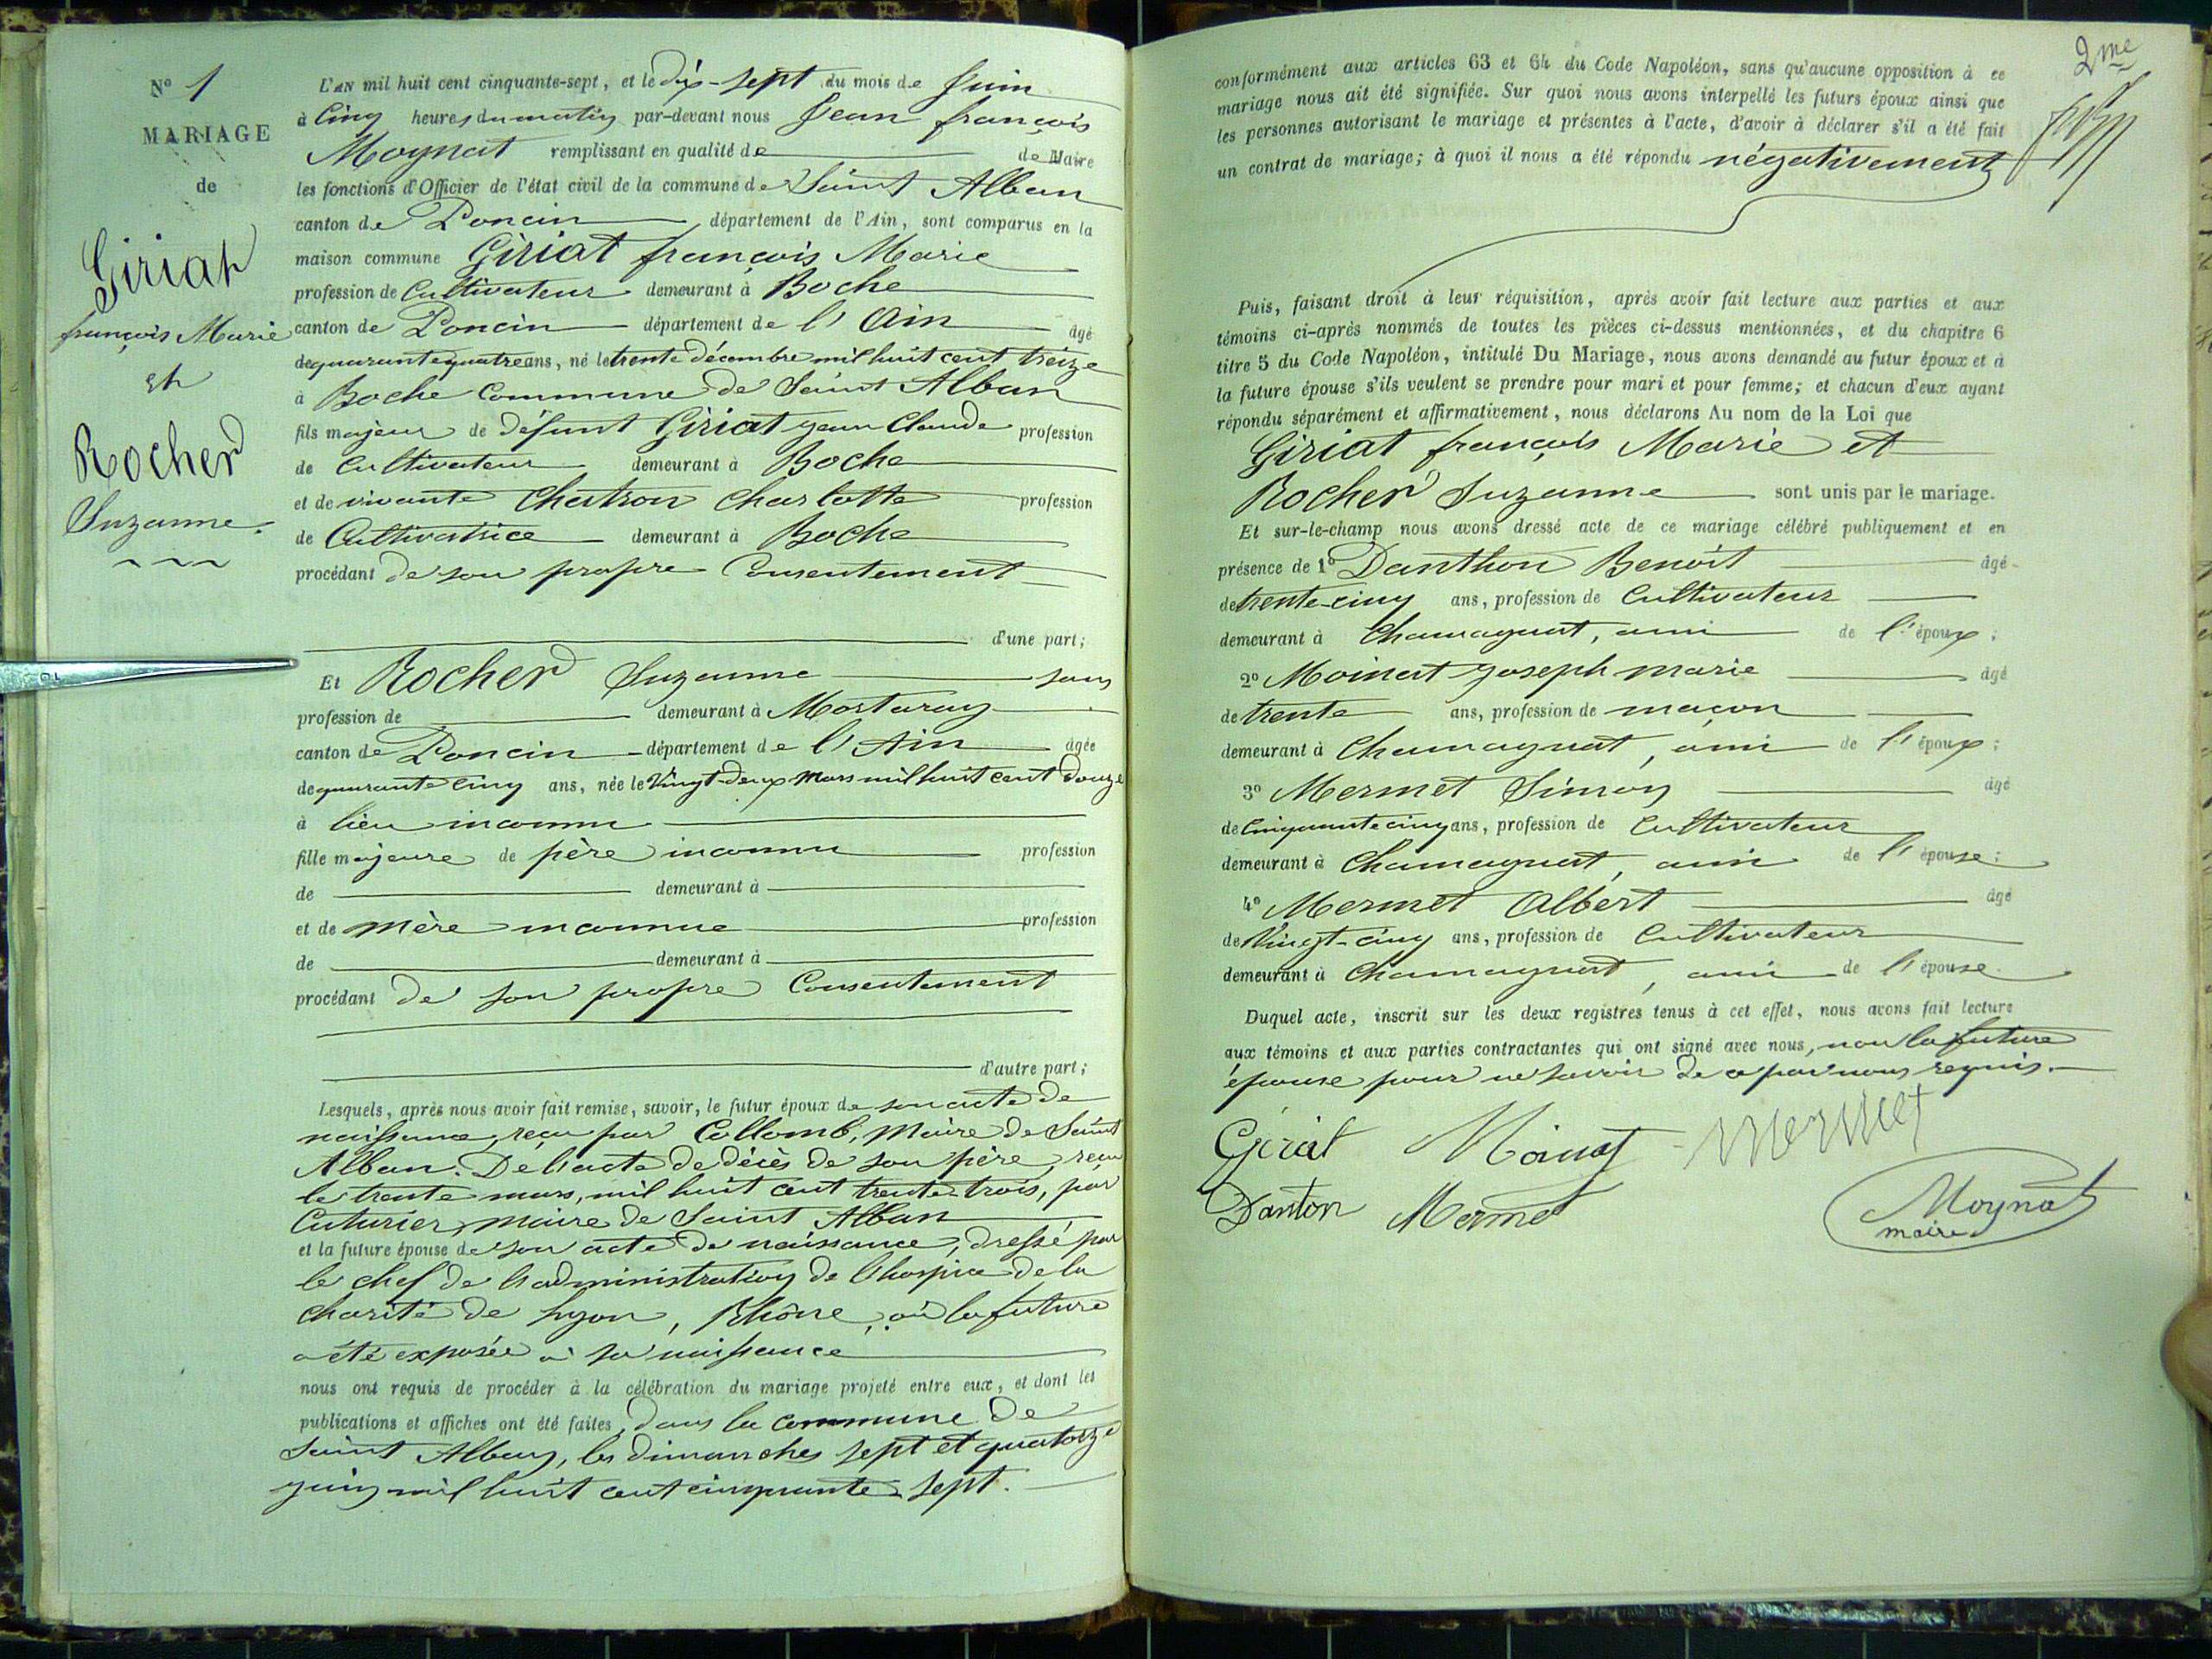 N° 1
MARIAGE
de
Giriat
françois Marie
et
Rocher
Suzanne.
L'AN mil huit cent cinquante-sept, et le dix-sept du mois de Juin
à Cinq heures du matin par-devant nous Jean françois
Moynat remplissant en qualité de de Maire
les fonctions d'Officier de l'état civil de la commune de Saint Alban
canton de Poncin département de l'Ain, sont comparus en la
maison commune Giriat françois Marie
profession de Cultivateur demeurant à Boche
canton de Poncin département de l'Ain âgé
de quarante quatre ans, né le trente décembre mil huit cent treize
à Boche Commune de Saint Alban
fils majeur de défunt Giriat jean Claude profession
de Cultivateur demeurant à Boche
et de vivante Chatron Charlotte profession
de Cultivatrice demeurant à Boche
procédant de son propre Consentement
d'une part;
Et Rocher Suzanne sans
profession de demeurant à Mortaray
canton de Poncin département de l'Ain âgée
de quarante cinq ans, née le Vingt-deux mars mil huit cent douze
à lieu inconnu
fille majeure de père inconnu profession
de demeurant à
et de mère inconnue profession
de demeurant à
procédant de son propre Consentement
d'autre part;
Lesquels, après nous avoir fait remise, savoir, le futur époux de son acte de
naissance, reçu par Collomb, Maire de Saint
Alban. De l'acte de décès de son père, reçu
le trente mars, mil huit cent trente trois, par
Cuturier, maire de Saint Alban
et la future épouse de son acte de naissance, dressé par
le chef de l'administration de l'hospice de la
charité de Lyon, Rhône, où la future
a été exposée à sa naissance
nous ont requis de procéder à la célébration du mariage projeté entre eux, et dont les
publications et affiches ont été faites, dans la commune de
Saint Alban, les dimanches sept et quatorze
juin mil huit cent cinquante sept.
2me
conformément aux articles 63 et 64 du Code Napoléon, sans qu'aucune opposition à ce
mariage nous ait été signifiée. Sur quoi nous avons interpellé les futurs époux ainsi que
les personnes autorisant le mariage et présentes à l'acte, d'avoir à déclarer s'il a été fait
un contrat de mariage; à quoi il nous a été répondu négativement
Puis, faisant droit à leur réquisition, après avoir fait lecture aux parties et aux
témoins ci-après nommés de toutes les pièces ci-dessus mentionnées, et du chapitre 6
titre 5 du Code Napoléon, intitulé Du Mariage, nous avons demandé au futur époux et à
la future épouse s'ils veulent se prendre pour mari et pour femme; et chacun d'eux ayant
répondu séparément et affirmativement, nous déclarons Au nom de la Loi que
Giriat françois Marie et
Rocher Suzanne sont unis par le mariage.
Et sur-le-champ nous avons dressé acte de ce mariage célébré publiquement et en
présence de 1° Danthon Benoit âgé
de trente-cinq ans, profession de Cultivateur
demeurant à Chamagnat, ami de l'époux;
2° Moinat joseph marie âgé
de trente ans, profession de maçon
demeurant à Chamagnat, ami de l'époux;
3° Mermet Simon âgé
de Cinquante cinq ans, profession de Cultivateur
demeurant à Chamagnat, ami de l'épouse;
4° Mermet Albert âgé
de Vingt-cinq ans, profession de Cultivateur
demeurant à Chamagnat, ami de l'épouse.
Duquel acte, inscrit sur les deux registres tenus à cet effet, nous avons fait lecture
aux témoins et aux parties contractantes qui ont signé avec nous, non la future
épouse pour ne savoir de ce par nous requis.
Girait Moinat Mermet
Danton Mermet Moynat
maire